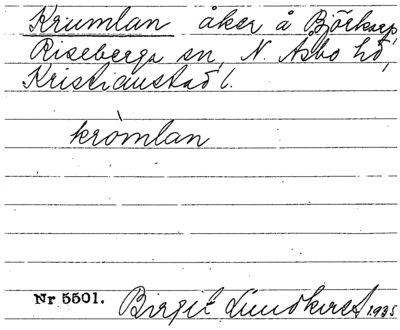 Krumlan åker å Björkarp
Riseberga sn, N. Åsbo hd,
Kristianstad l.
kròmlan
Nr 5501. Birgit Lundkvist 1935